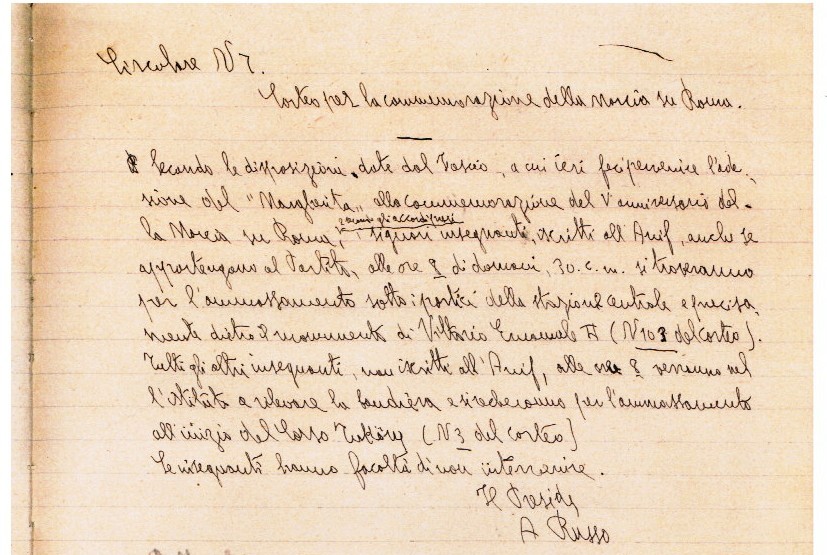 Circolare N 7.
Corteo per la commemorazione della Marcia su Roma.
Secondo le disposizioni date dal Fascio, a cui ieri feci pervenire l'ade-
sione del "Margherita" alla commemorazione del V anniversario del-
secondo gli accordi presi
la Marcia su Roma, i signori insegnanti iscritti all'Anif, anche se
appartengano al Partito, alle ore 8 di domani, 30. c. m. si troveranno
per l'ammassamento sotto i portici della stazione centrale e precisa-
mente dietro il monumento di Vittorio Emanuele II (N 103 del corteo).
Tutti gli altri insegnanti, non iscritti all'Anif, alle ore 8 verranno nel
l'Istituto a rilevare la bandiera e si recheranno per l'ammassamento
all'inizio del Corso Tuköry (N 3 del corteo)
Le insegnanti hanno facoltà di non intervenire.
Il Preside
A Russo